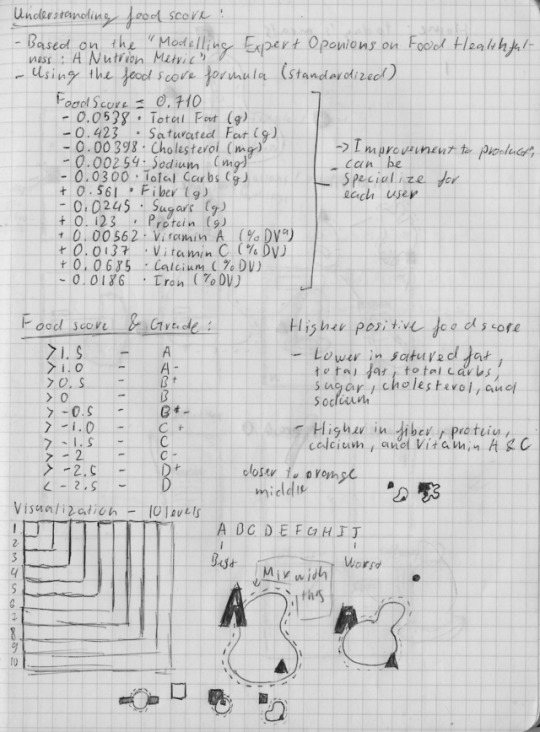 Understanding food score:
- Based on the "Modelling Expert Oponions on Food Healthful-
ness: A Nutrion Metric"
- Using the food score formula (standardized)
FoodScore = 0.710
- 0.0538 · Total Fat (g)
- 0.423 · Saturated Fat (g)
- 0.00398 · Cholesterol (mg)
- 0.00254 · Sodium (mg)
- 0.0300 · Total Carbs (g)
+ 0.561 · Fiber (g)
- 0.0245 · Sugars (g)
+ 0.123 · Protein (g)
+ 0.00562 · Vitamin A (%DVª)
+ 0.0137 · Vitamin C (%DV)
+ 0.0685 · Calcium (%DV)
- 0.0186 · Iron (%DV)
-> Improvement to product,
can be
specialize for
each user
Food score & Grade:
> 1.5 - A
> 1.0 - A-
> 0.5 - B+
> 0 - B
> -0.5 - B-
> -1.0 - C+
> -1.5 - C
> -2 - C-
> -2.5 - D+
< -2.5 - D
Higher positive food score
- Lower in satured fat,
total fat, total carbs,
sugar, cholesterol, and
sodium
- Higher in fiber, protein,
calcium, and vitamin A & C
closer to orange
middle
Visualization - 10 levels
1
2
3
4
5
6
7
8
9
10
A B C D E F G H I J
Best Worst
Mix with
this
A
A
A
A